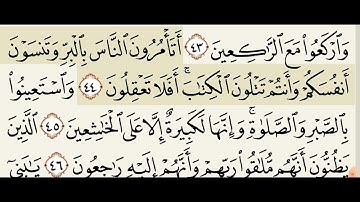 وَارْكَعُوا مَعَ الرَّاكِعِينَ ٤٣ أَتَأْمُرُونَ النَّاسَ بِالْبِرِّ وَتَنسَوْنَ
أَنفُسَكُمْ وَأَنتُمْ تَتْلُونَ الْكِتَابَ ۚ أَفَلَا تَعْقِلُونَ ٤٤ وَاسْتَعِينُوا
بِالصَّبْرِ وَالصَّلَوٰةِ ۚ وَإِنَّهَا لَكَبِيرَةٌ إِلَّا عَلَى الْخَٰشِعِينَ ٤٥ الَّذِينَ
يَظُنُّونَ أَنَّهُم مُّلَٰقُوا رَبِّهِمْ وَأَنَّهُمْ إِلَيْهِ رَٰجِعُونَ ٤٦ يَٰبَنِىٓ